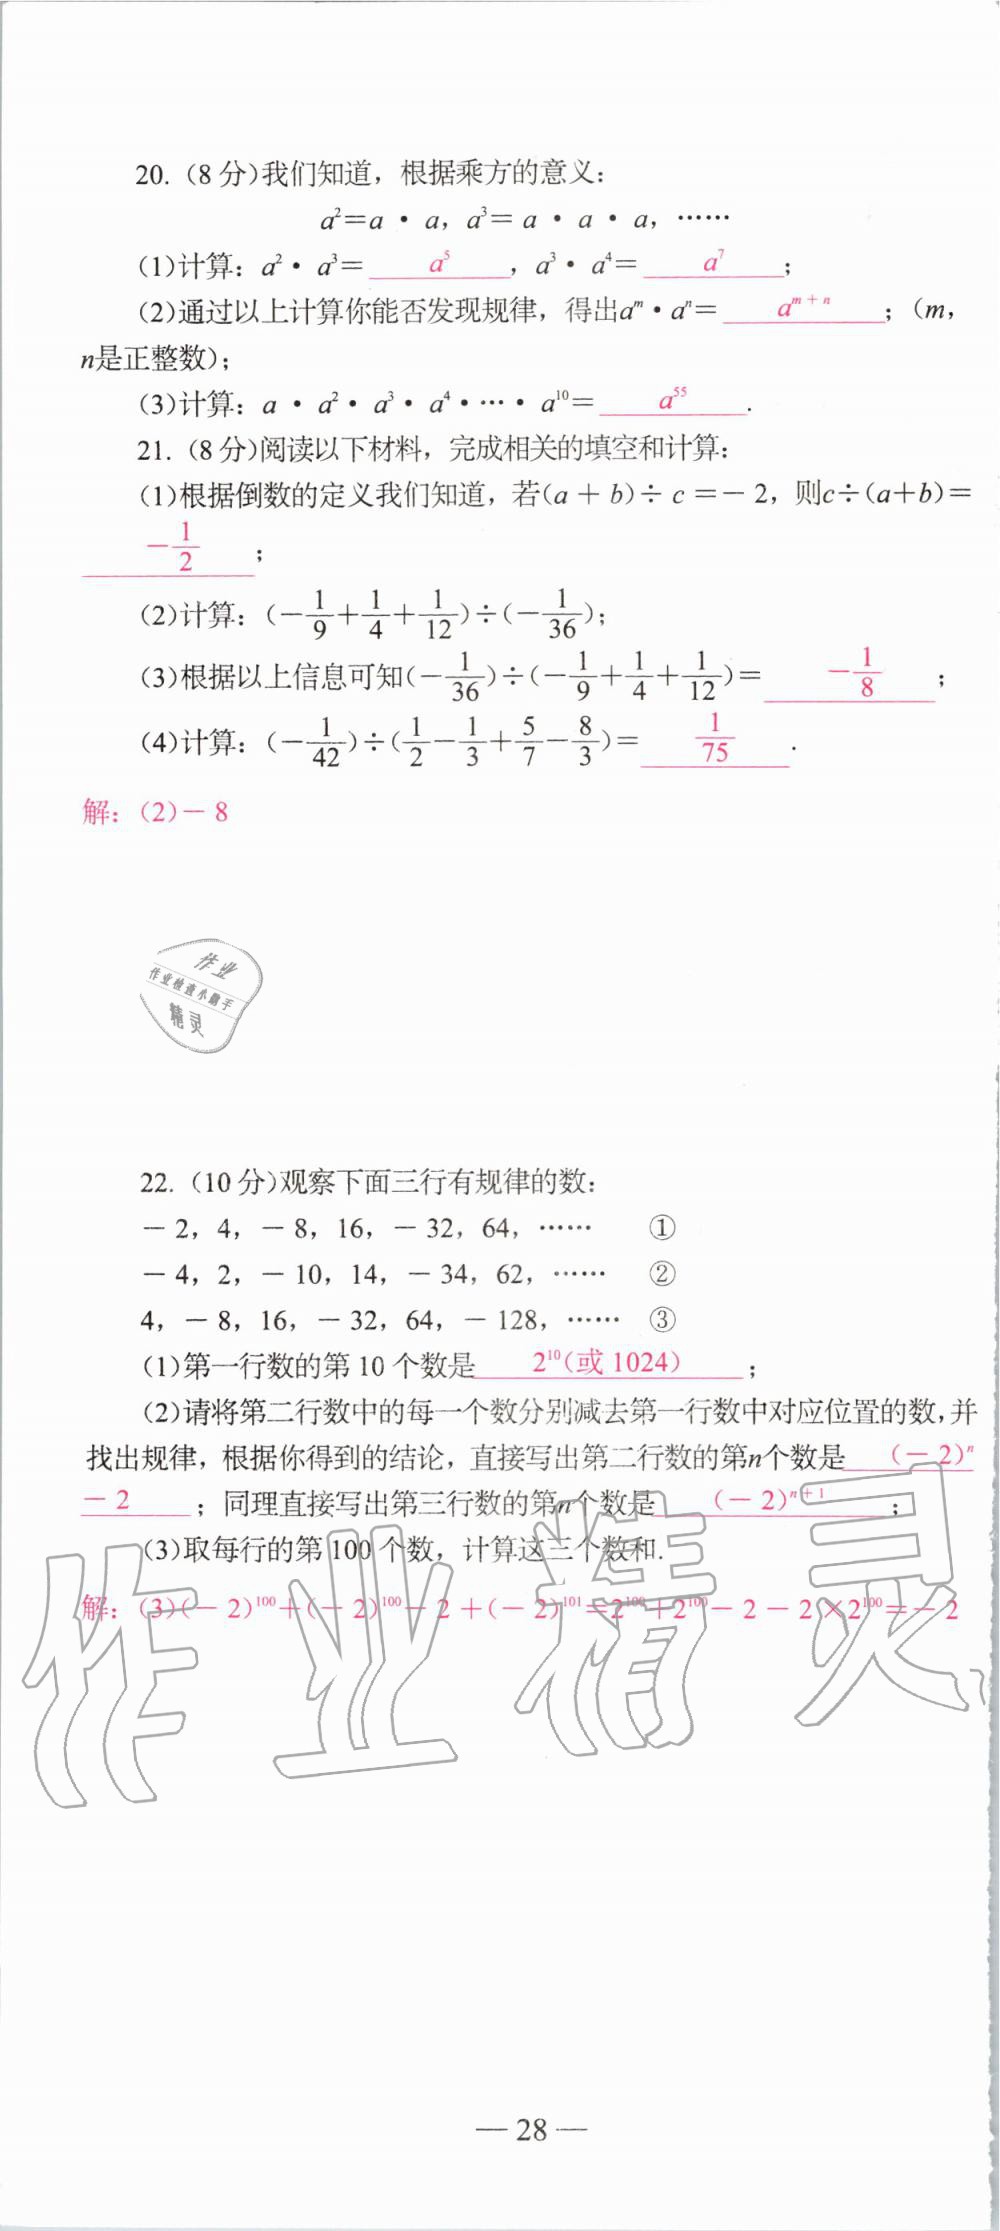 20. (8分)我们知道，根据乘方的意义：
a²=a·a，a³=a·a·a，……
(1)计算：a²·a³= a⁵ ，a³·a⁴= a⁷ ；
(2)通过以上计算你能否发现规律，得出aᵐ·aⁿ= aᵐ⁺ⁿ ；(m，
n是正整数)；
(3)计算：a·a²·a³·a⁴·…·a¹⁰= a⁵⁵ .
21. (8分)阅读以下材料，完成相关的填空和计算：
(1)根据倒数的定义我们知道，若(a+b)÷c=-2，则c÷(a+b)=
-1/2 ；
(2)计算：(-1/9+1/4+1/12)÷(-1/36)；
(3)根据以上信息可知(-1/36)÷(-1/9+1/4+1/12)= -1/8 ；
(4)计算：(-1/42)÷(1/2-1/3+5/7-8/3)= 1/75 .
解：(2)-8
作业
作业检查小助手
精灵
22. (10分)观察下面三行有规律的数：
-2，4，-8，16，-32，64，…… ①
-4，2，-10，14，-34，62，…… ②
4，-8，16，-32，64，-128，…… ③
(1)第一行数的第10个数是 2¹⁰(或1024) ；
(2)请将第二行数中的每一个数分别减去第一行数中对应位置的数，并
找出规律，根据你得到的结论，直接写出第二行数的第n个数是 (-2)ⁿ
-2 ；同理直接写出第三行数的第n个数是 (-2)ⁿ⁺¹ ；
(3)取每行的第100个数，计算这三个数和.
解：(3)(-2)¹⁰⁰+(-2)¹⁰⁰-2+(-2)¹⁰¹=2¹⁰⁰+2¹⁰⁰-2-2×2¹⁰⁰=-2
作业精灵
— 28 —